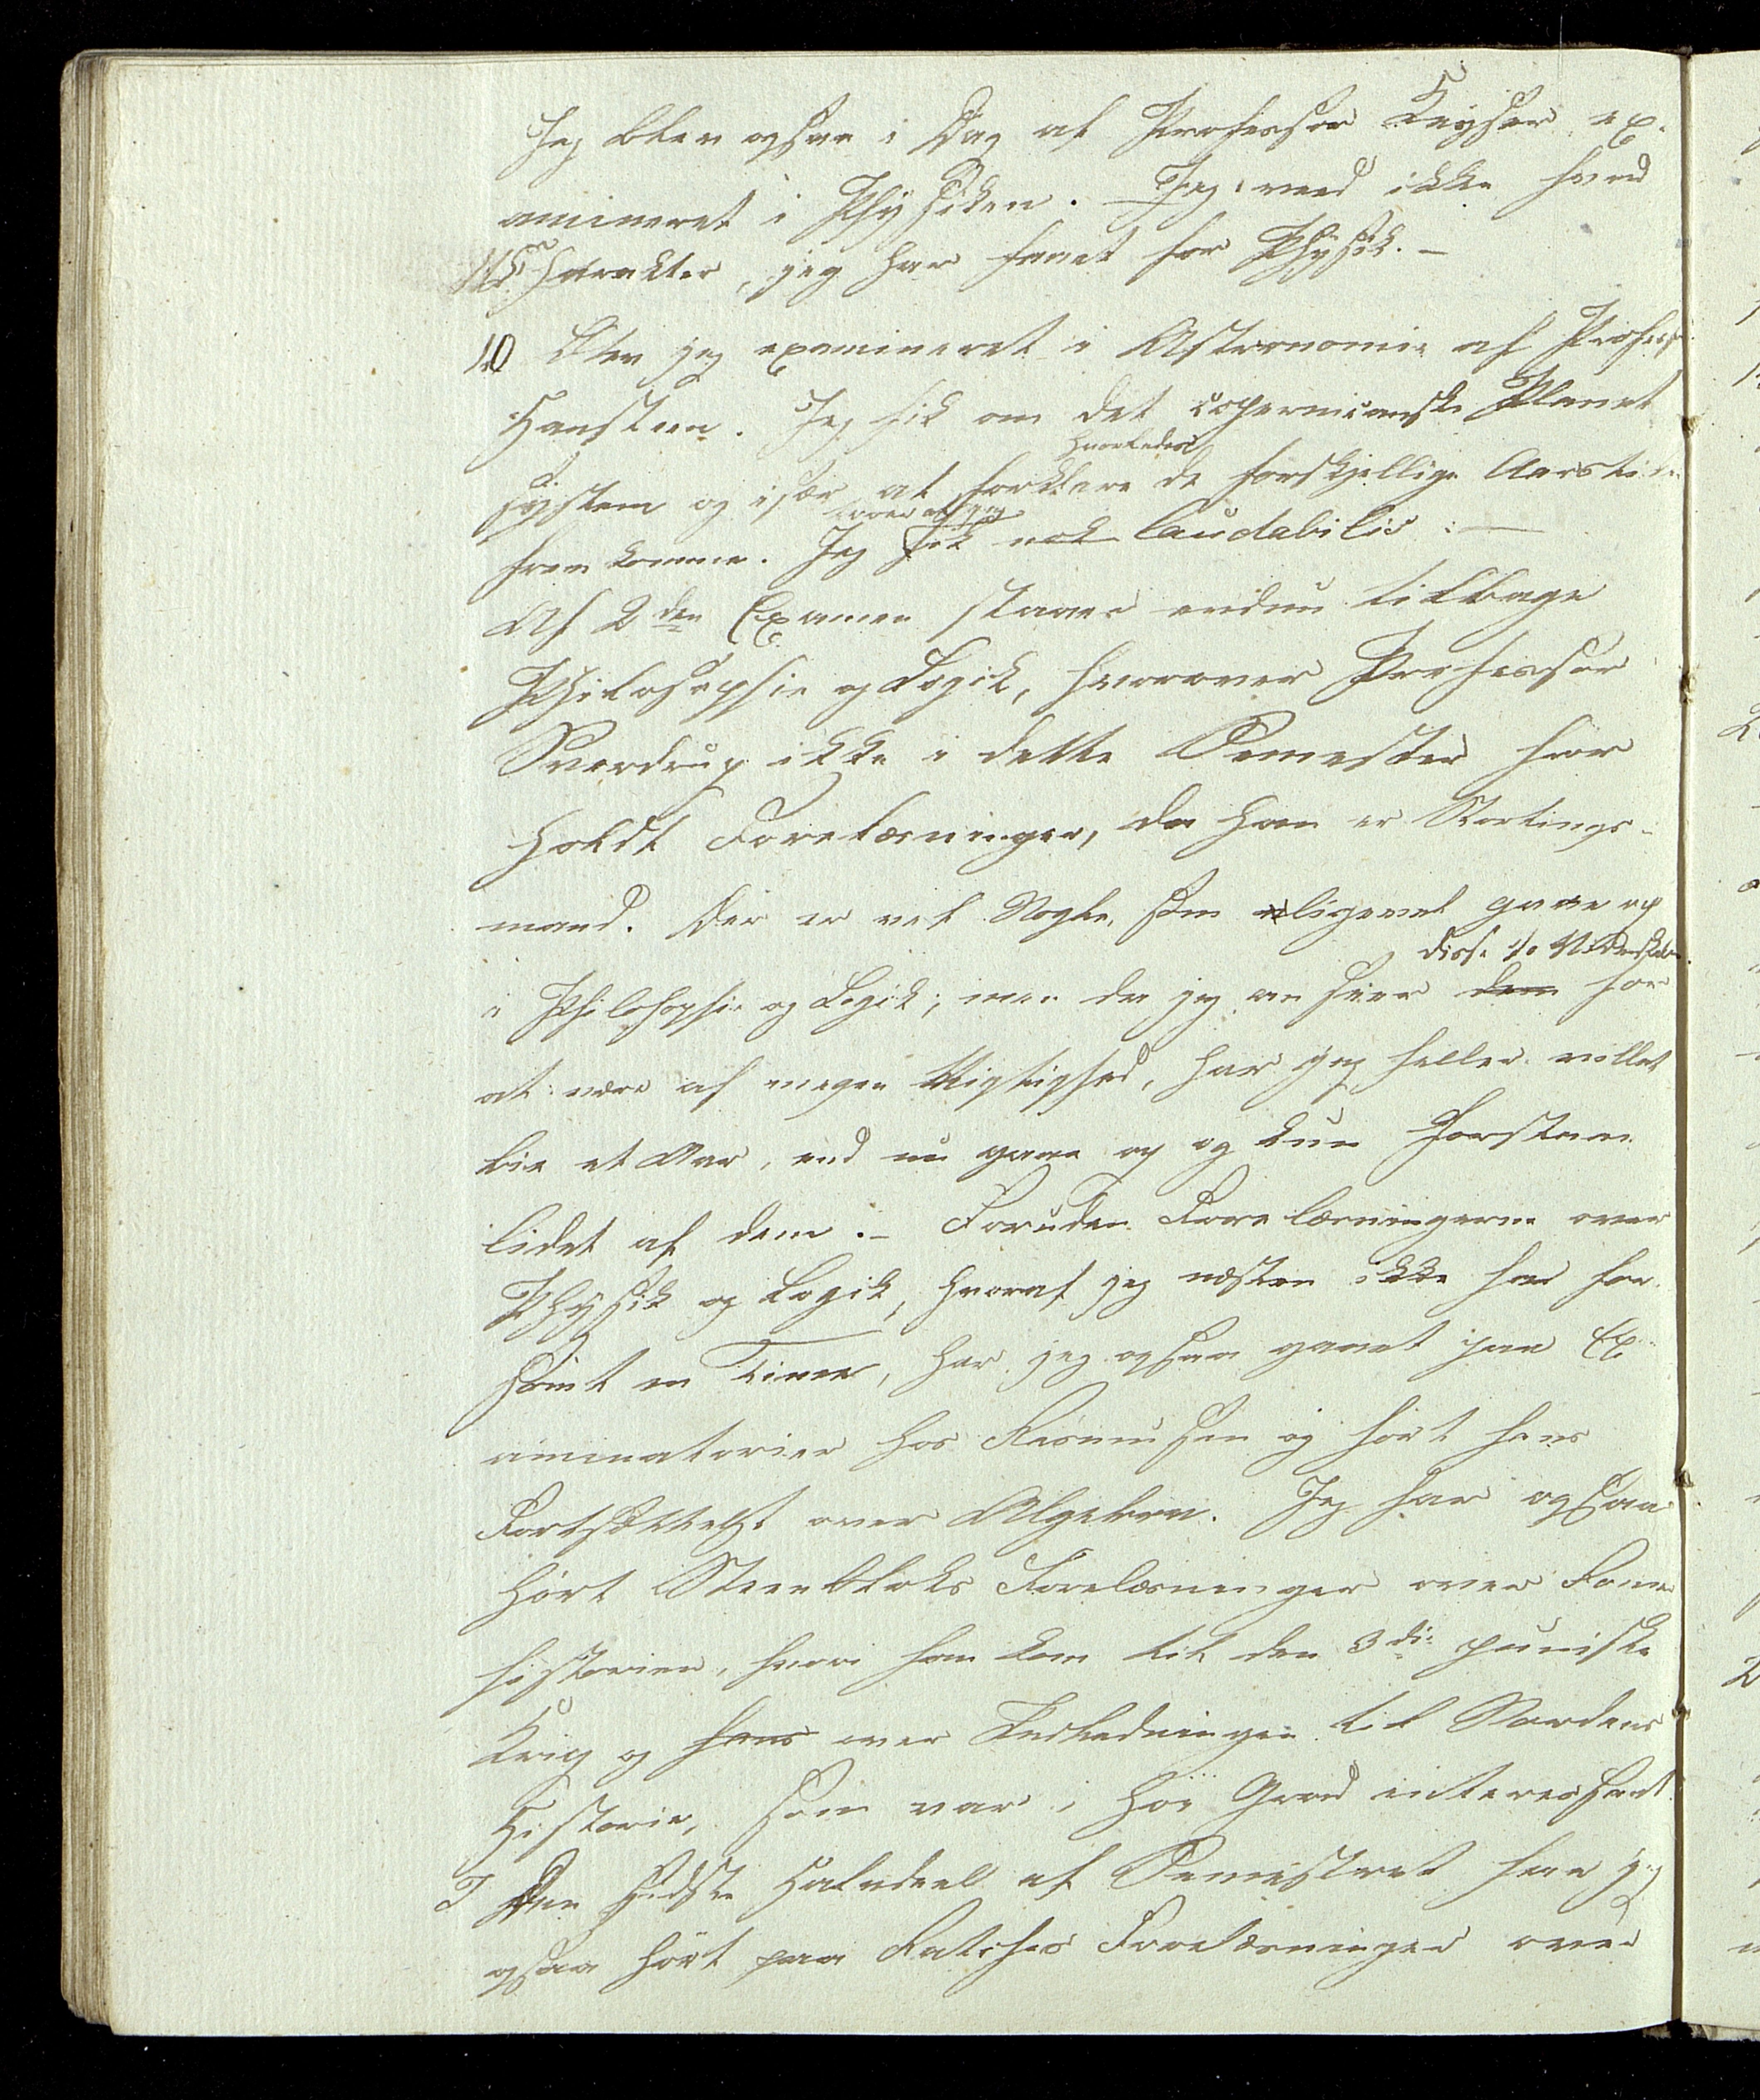 Jeg blev ogsaa i Dag af Professor Keyser ex-
amineret i Physiken. – Jeg veed ikke hvad
Charakter, jeg har faaet for Physik. –
10 Blev jeg examineret i Astronomie af Profess
Hansteen. Jeg fik om det copernicanske Planet
hvorledes
system og især at forklare de forskjellige Aarstider
fremkomme. Jeg fik nok laudabilis : —
Af 2den Examen staaer endnu tilbage
Philosophie og Logik, hvorover Professor
Sverdrup ikke i dette Semester har
holdt Forelæsninger, da han er Stortings-
mand. Der er vel Nogle, som ligevel gaae op
disse to Videnskaber
i Philosophie og Logik; men da jeg anseer dem for
at være af megen Vigtighed, har jeg heller villet
bie et Aar, end nu gaae op og kun forstaae
lidet af dem. – Foruden Forelæsningerne over
Physik og Logik, hvoraf jeg næsten ikke har for-
sömt en Time, har jeg ogsaa gaaet paa Ex-
aminatorier hos Rasmussen og hört hans
Fortsættelse over Algebra. Jeg har ogsaa
hört Steenbloks Forelæsninger over Romer
historien, hvori han kom til den 3die puniske
Krig og hans over Indledningen til Nordens
Historie, som var i höi Grad interessant
I Den sidste Halvdeel af Semestret har jeg
ogsaa hört paa Rathkes Forelæsninger over